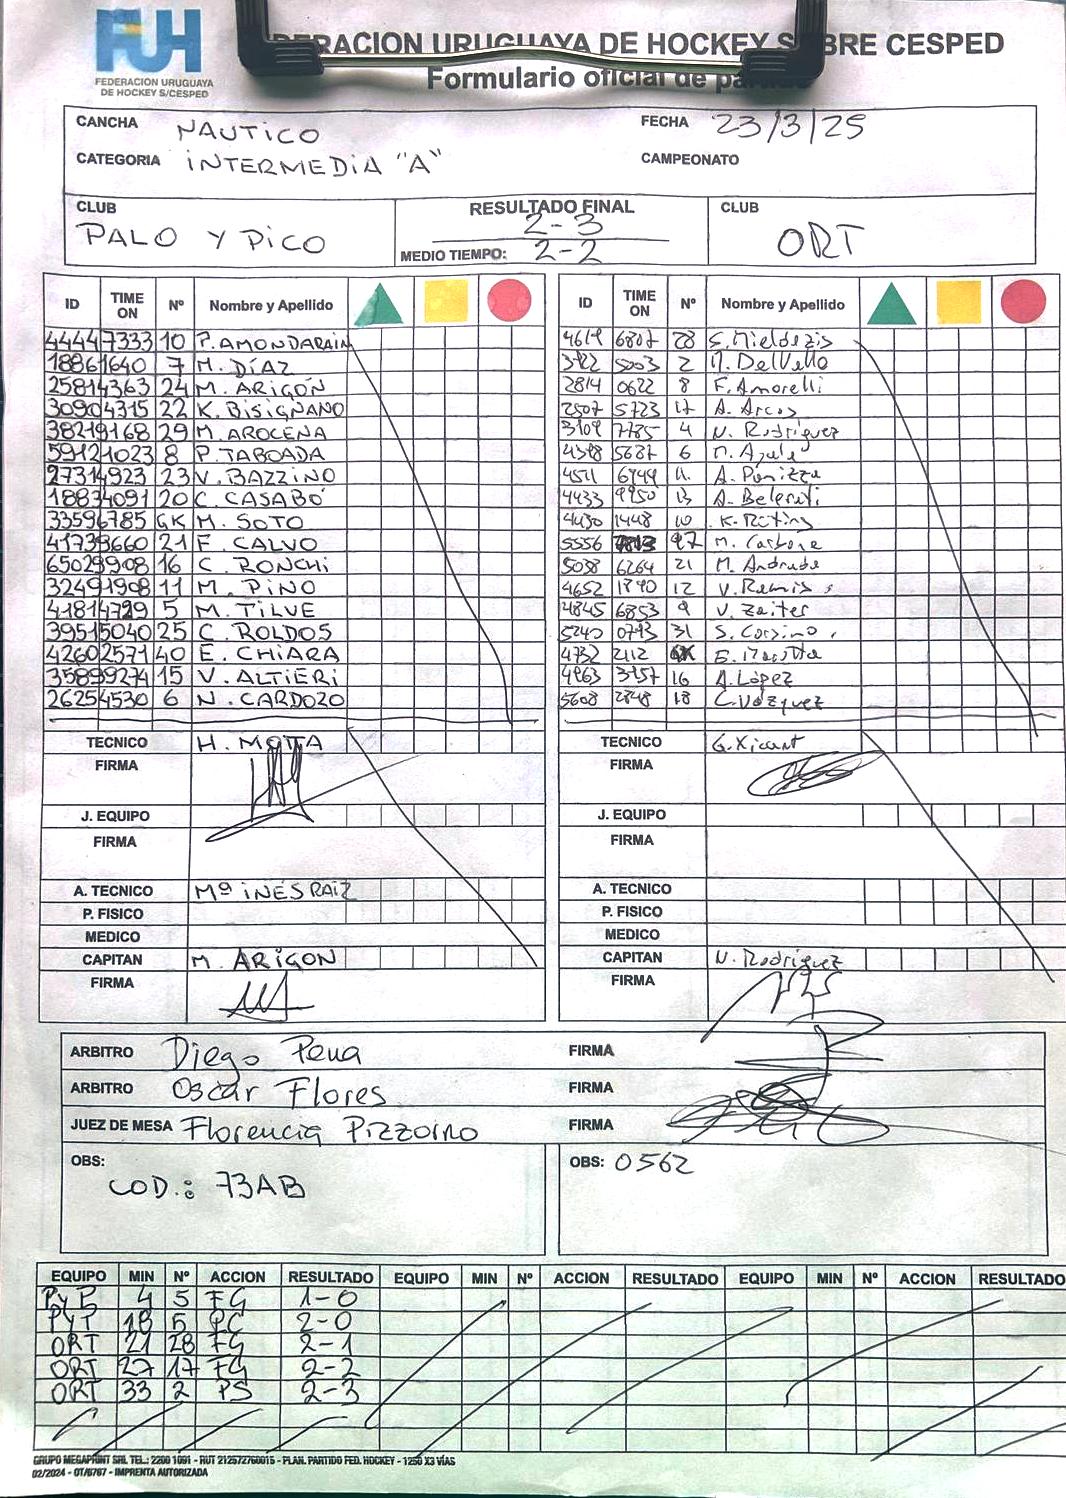 FUH
FEDERACION URUGUAYA
DE HOCKEY S/CESPED
DERACION URUGUAYA DE HOCKEY S BRE CESPED
Formulario oficial de partido
CANCHA NAUTICO FECHA 23/3/25
CATEGORIA INTERMEDIA "A" CAMPEONATO
CLUB PALO Y PICO
RESULTADO FINAL 2-3
MEDIO TIEMPO: 2-2
CLUB ORT
ID TIME ON Nº Nombre y Apellido
44447333 10 P. AMONDARAIN
18861640 7 M. DÍAZ
25814363 24 M. ARIGÓN
30904315 22 K. BISIGNANO
38219168 29 M. AROCENA
59121023 8 P. TABOADA
27314923 23 V. BAZZINO
18834091 20 C. CASABÓ
33596785 GK M. SOTO
41739660 21 F. CALVO
65029908 16 C. RONCHI
32491908 11 M. PINO
41814729 5 M. TILVE
39515040 25 C. ROLDOS
42602571 40 E. CHIARA
35899274 15 V. ALTIERI
26254530 6 N. CARDOZO
TECNICO H. MOTTA
FIRMA
J. EQUIPO
FIRMA
A. TECNICO Mª INÉS RAIZ
P. FISICO
MEDICO
CAPITAN M. ARIGON
FIRMA
ID TIME ON Nº Nombre y Apellido
4619 6807 28 S. Mieldezis
3422 5003 2 M. Delvello
2814 0622 8 F. Amorelli
2507 5723 17 A. Arcos
3109 7785 4 N. Rodriguez
4398 5687 6
4511 11 A. Panizza
4433 9950 13
4430 1448 10
5556 97 M. Carbone
5038 6264 21 M. Andrade
4652 1890 12 V. Remis
4845 6853 9 V. Zaiter
5240 0793 31 S. Corsino
4732 2112
4963 3957 16 A. López
5608 2848 18 C. Vázquez
TECNICO
FIRMA
J. EQUIPO
FIRMA
A. TECNICO
P. FISICO
MEDICO
CAPITAN N. Rodriguez
FIRMA
ARBITRO Diego Pena FIRMA
ARBITRO Oscar Flores FIRMA
JUEZ DE MESA Florencia Pizzorno FIRMA
OBS: COD.: 73AB
OBS: 0562
EQUIPO MIN Nº ACCION RESULTADO EQUIPO MIN Nº ACCION RESULTADO EQUIPO MIN Nº ACCION RESULTADO
PyP 4 5 FG 1-0
PYP 18 5 PC 2-0
ORT 21 28 FG 2-1
ORT 27 17 FG 2-2
ORT 33 2 PS 2-3
GRUPO MEGAPRINT SRL TEL.: 2200 1091 - RUT 212572760015 - PLAN. PARTIDO FED. HOCKEY - 1250 X3 VÍAS
02/2024 - OT/6767 - IMPRENTA AUTORIZADA